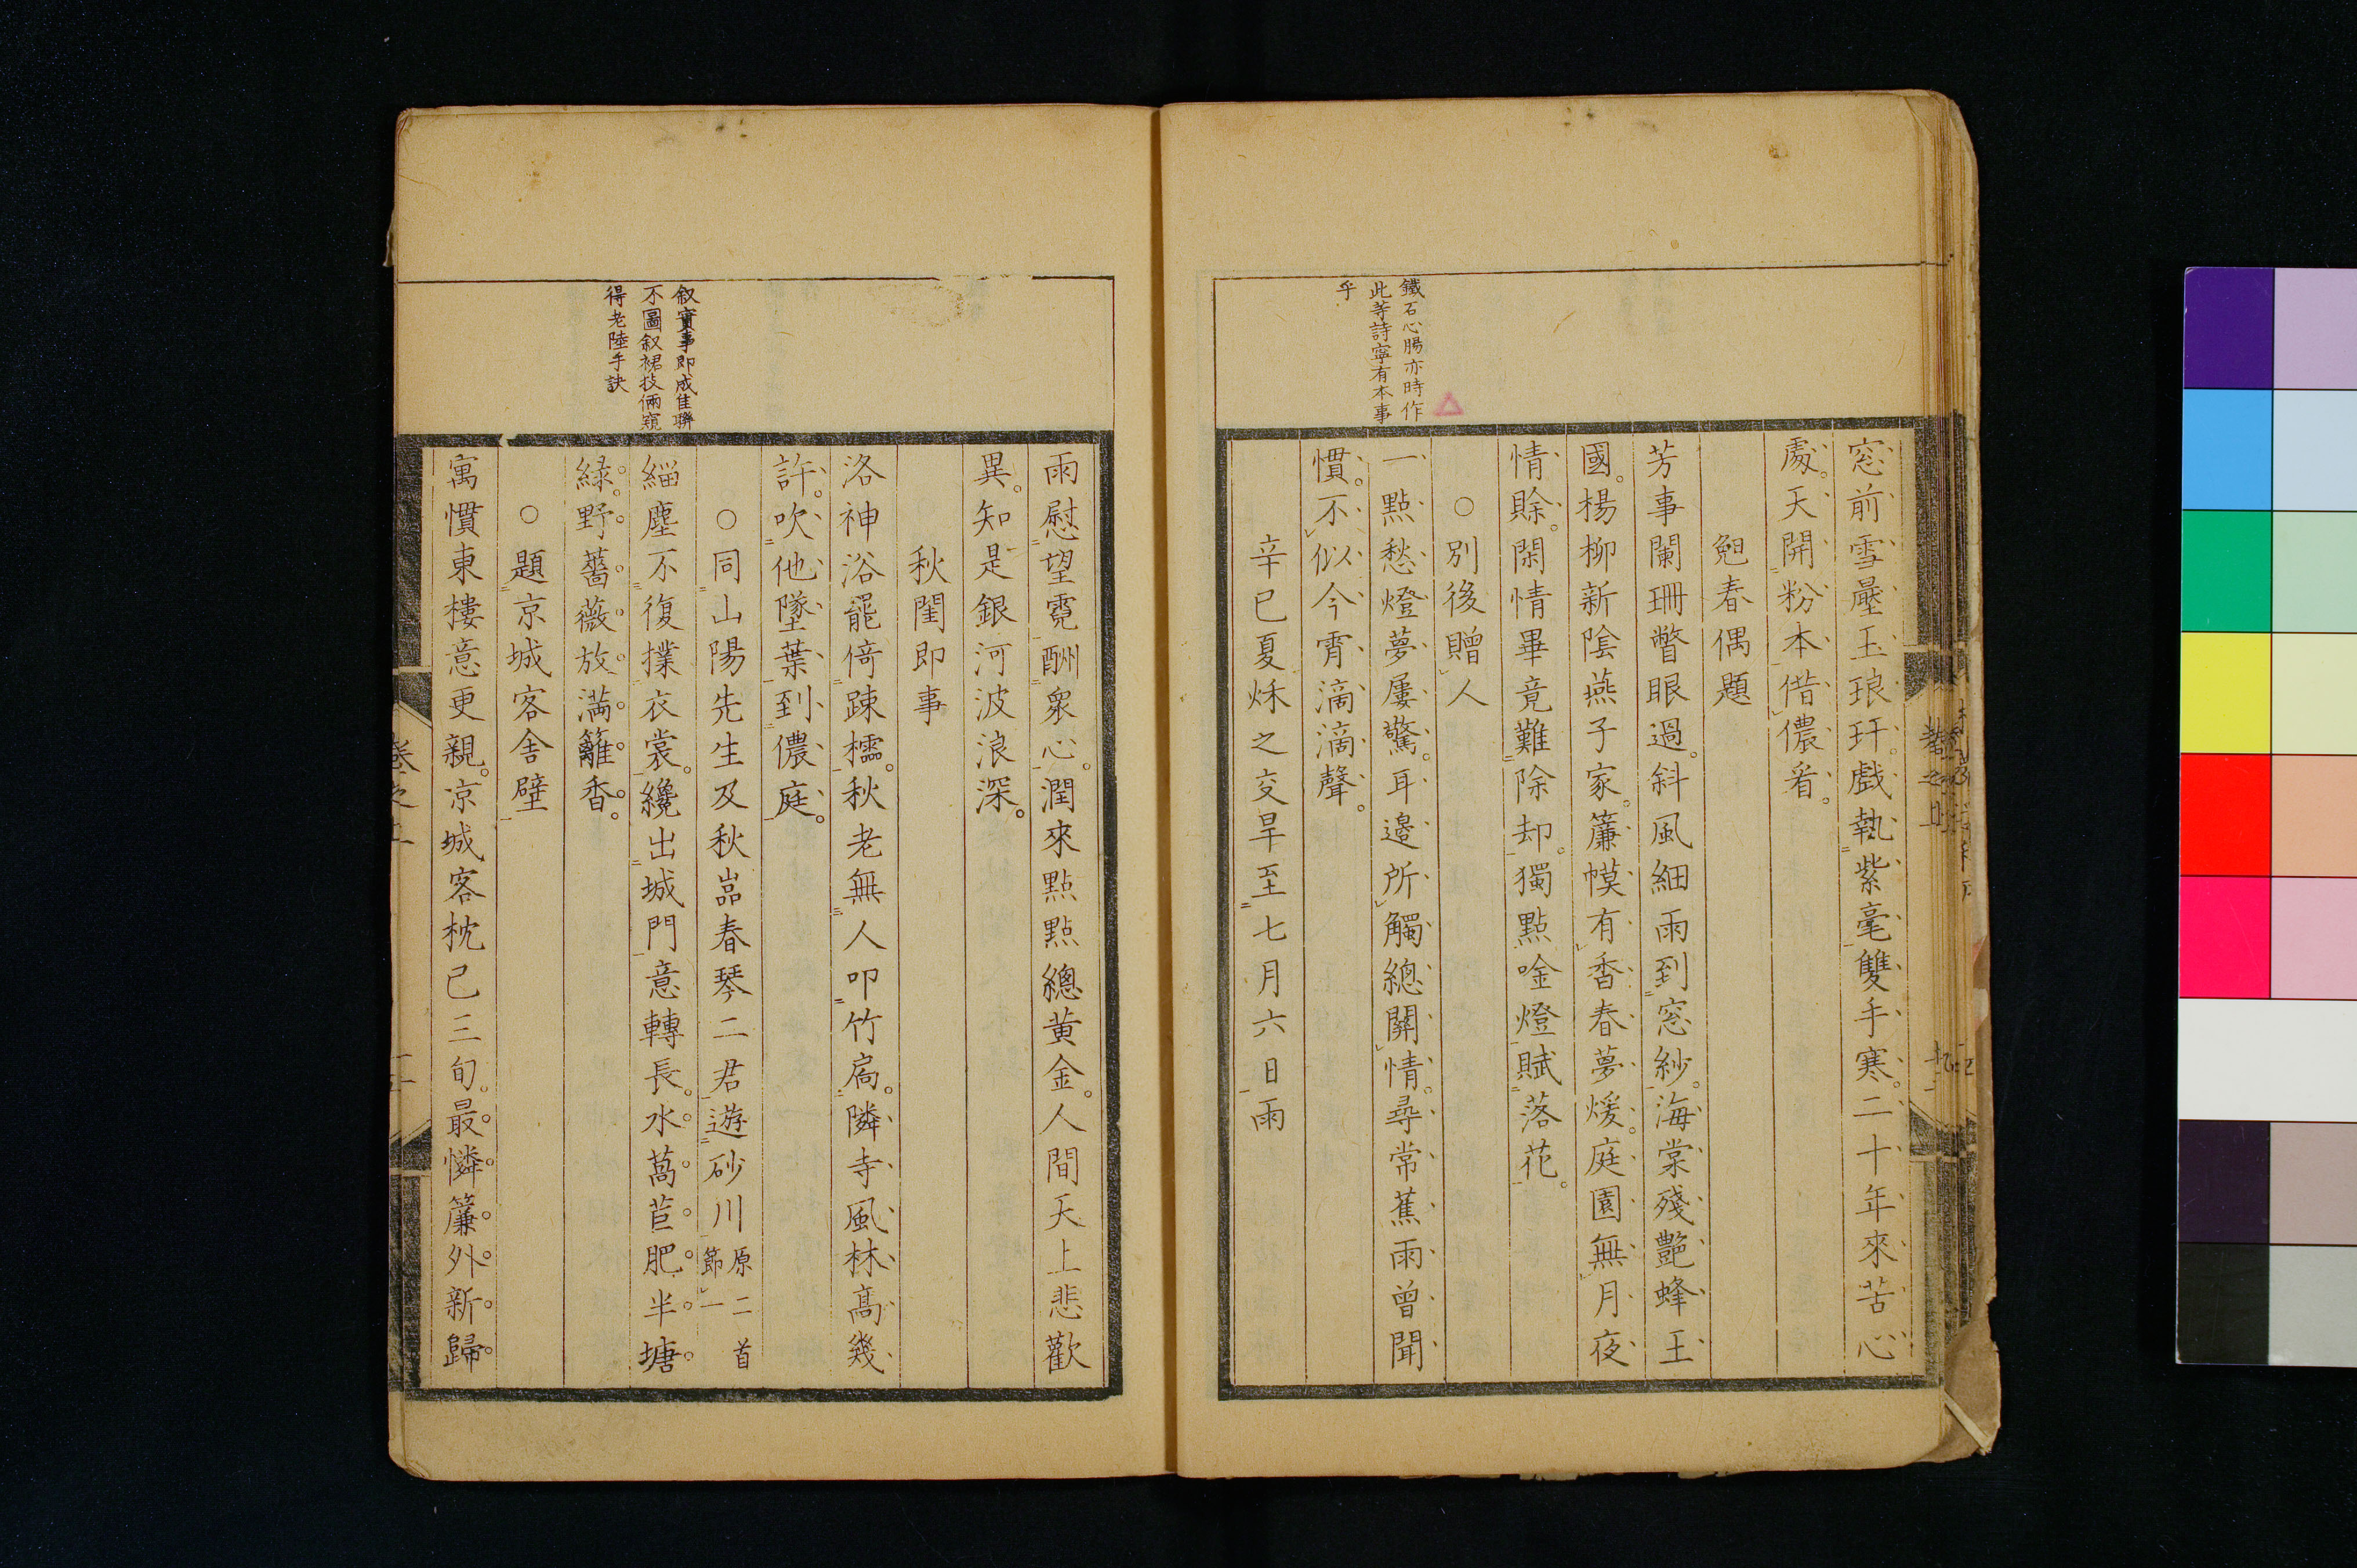 鐵石心腸亦時作
此等詩寧有本事
乎
窓前雪壓玉琅玕。戲執紫毫雙手寒。二十年來苦心
處。天開粉本借儂看。
春偶題
芳事闌珊瞥眼過。斜風細雨到窓紗。海棠殘艷蜂王
國。楊柳新陰燕子家。簾幙有香春夢煖。庭園無月夜
情賖。閑情畢竟難除却。獨點唫燈賦落花。
○別後贈人
一點愁燈夢屢驚。耳邊所觸總關情。尋常蕉雨曾聞
慣。不似今霄滴滴聲。
辛巳夏秌之交旱至七月六日雨
叙實事即成佳聯
不圖叙裙技倆窺
得老陸手訣
雨慰望霓酬衆心。潤來點點總黄金。人間天上悲歡
異。知是銀河波浪深。
秋閨即事
洛神浴罷倚踈櫺。秋老無人叩竹扃。隣寺風林髙幾
許。吹他墜葉到儂庭。
○同山陽先生及秋嵒春琴二君遊砂川原二首節一
緇塵不復撲衣裳。纔出城門意轉長。水萵苣肥半塘
緑。野薔薇放滿籬香。
○題京城客舎壁
寓慣東樓意更親。凉城客枕已三旬。最憐簾外新歸